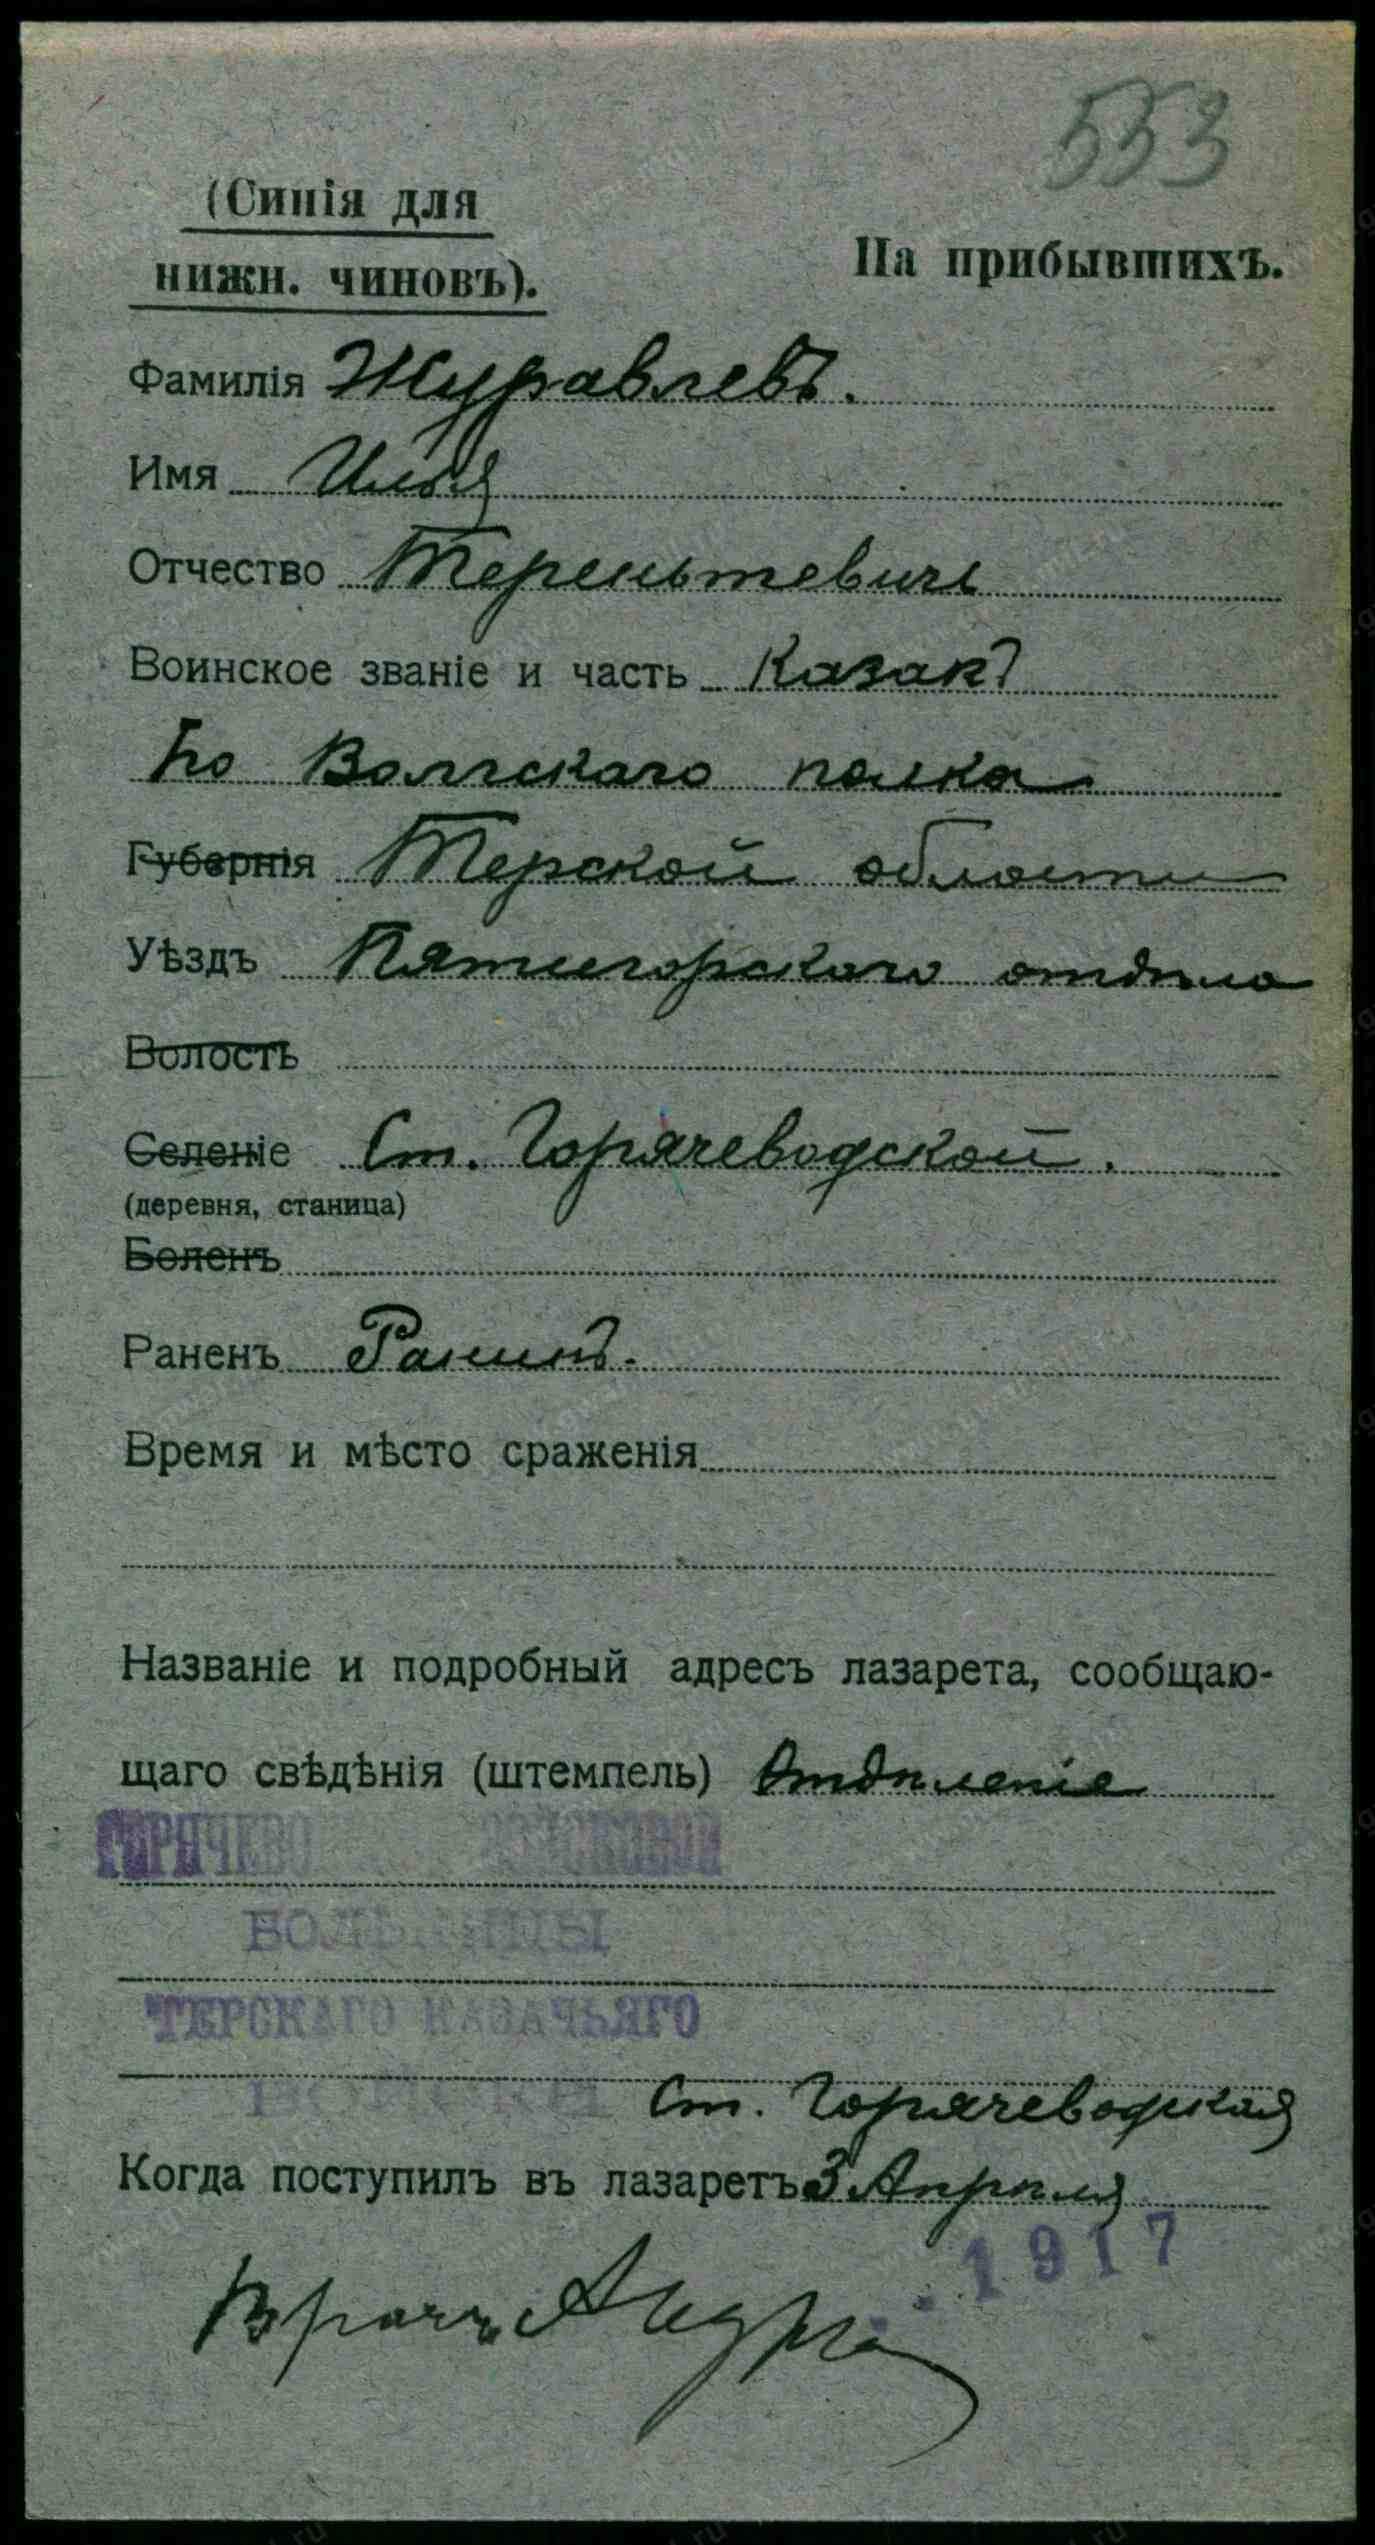 553
(Синія для
нижн. чиновъ).
На прибывшихъ.
Фамилія Журавлевъ.
Имя Илья
Отчество Терентьевичъ
Воинское званіе и часть Казакъ
Волгскаго полка
Губернія Терской области
Уѣздъ Пятигорскаго отдѣла
Волость
Селеніе Ст. Горячеводской.
(деревня, станица)
Боленъ
Раненъ Раненъ.
Время и мѣсто сраженія
Названіе и подробный адресъ лазарета, сообщаю-
щаго свѣдѣнія (штемпель) Отдѣленіе
ГОРЯЧЕВО ВОЙСКОВОЙ
БОЛЬНИЦЫ
ТЕРСКАГО КАЗАЧЬЯГО
ВОЙСКА Ст. Горячеводская
Когда поступилъ въ лазаретъ 3 Апрѣля
1917
Врачъ